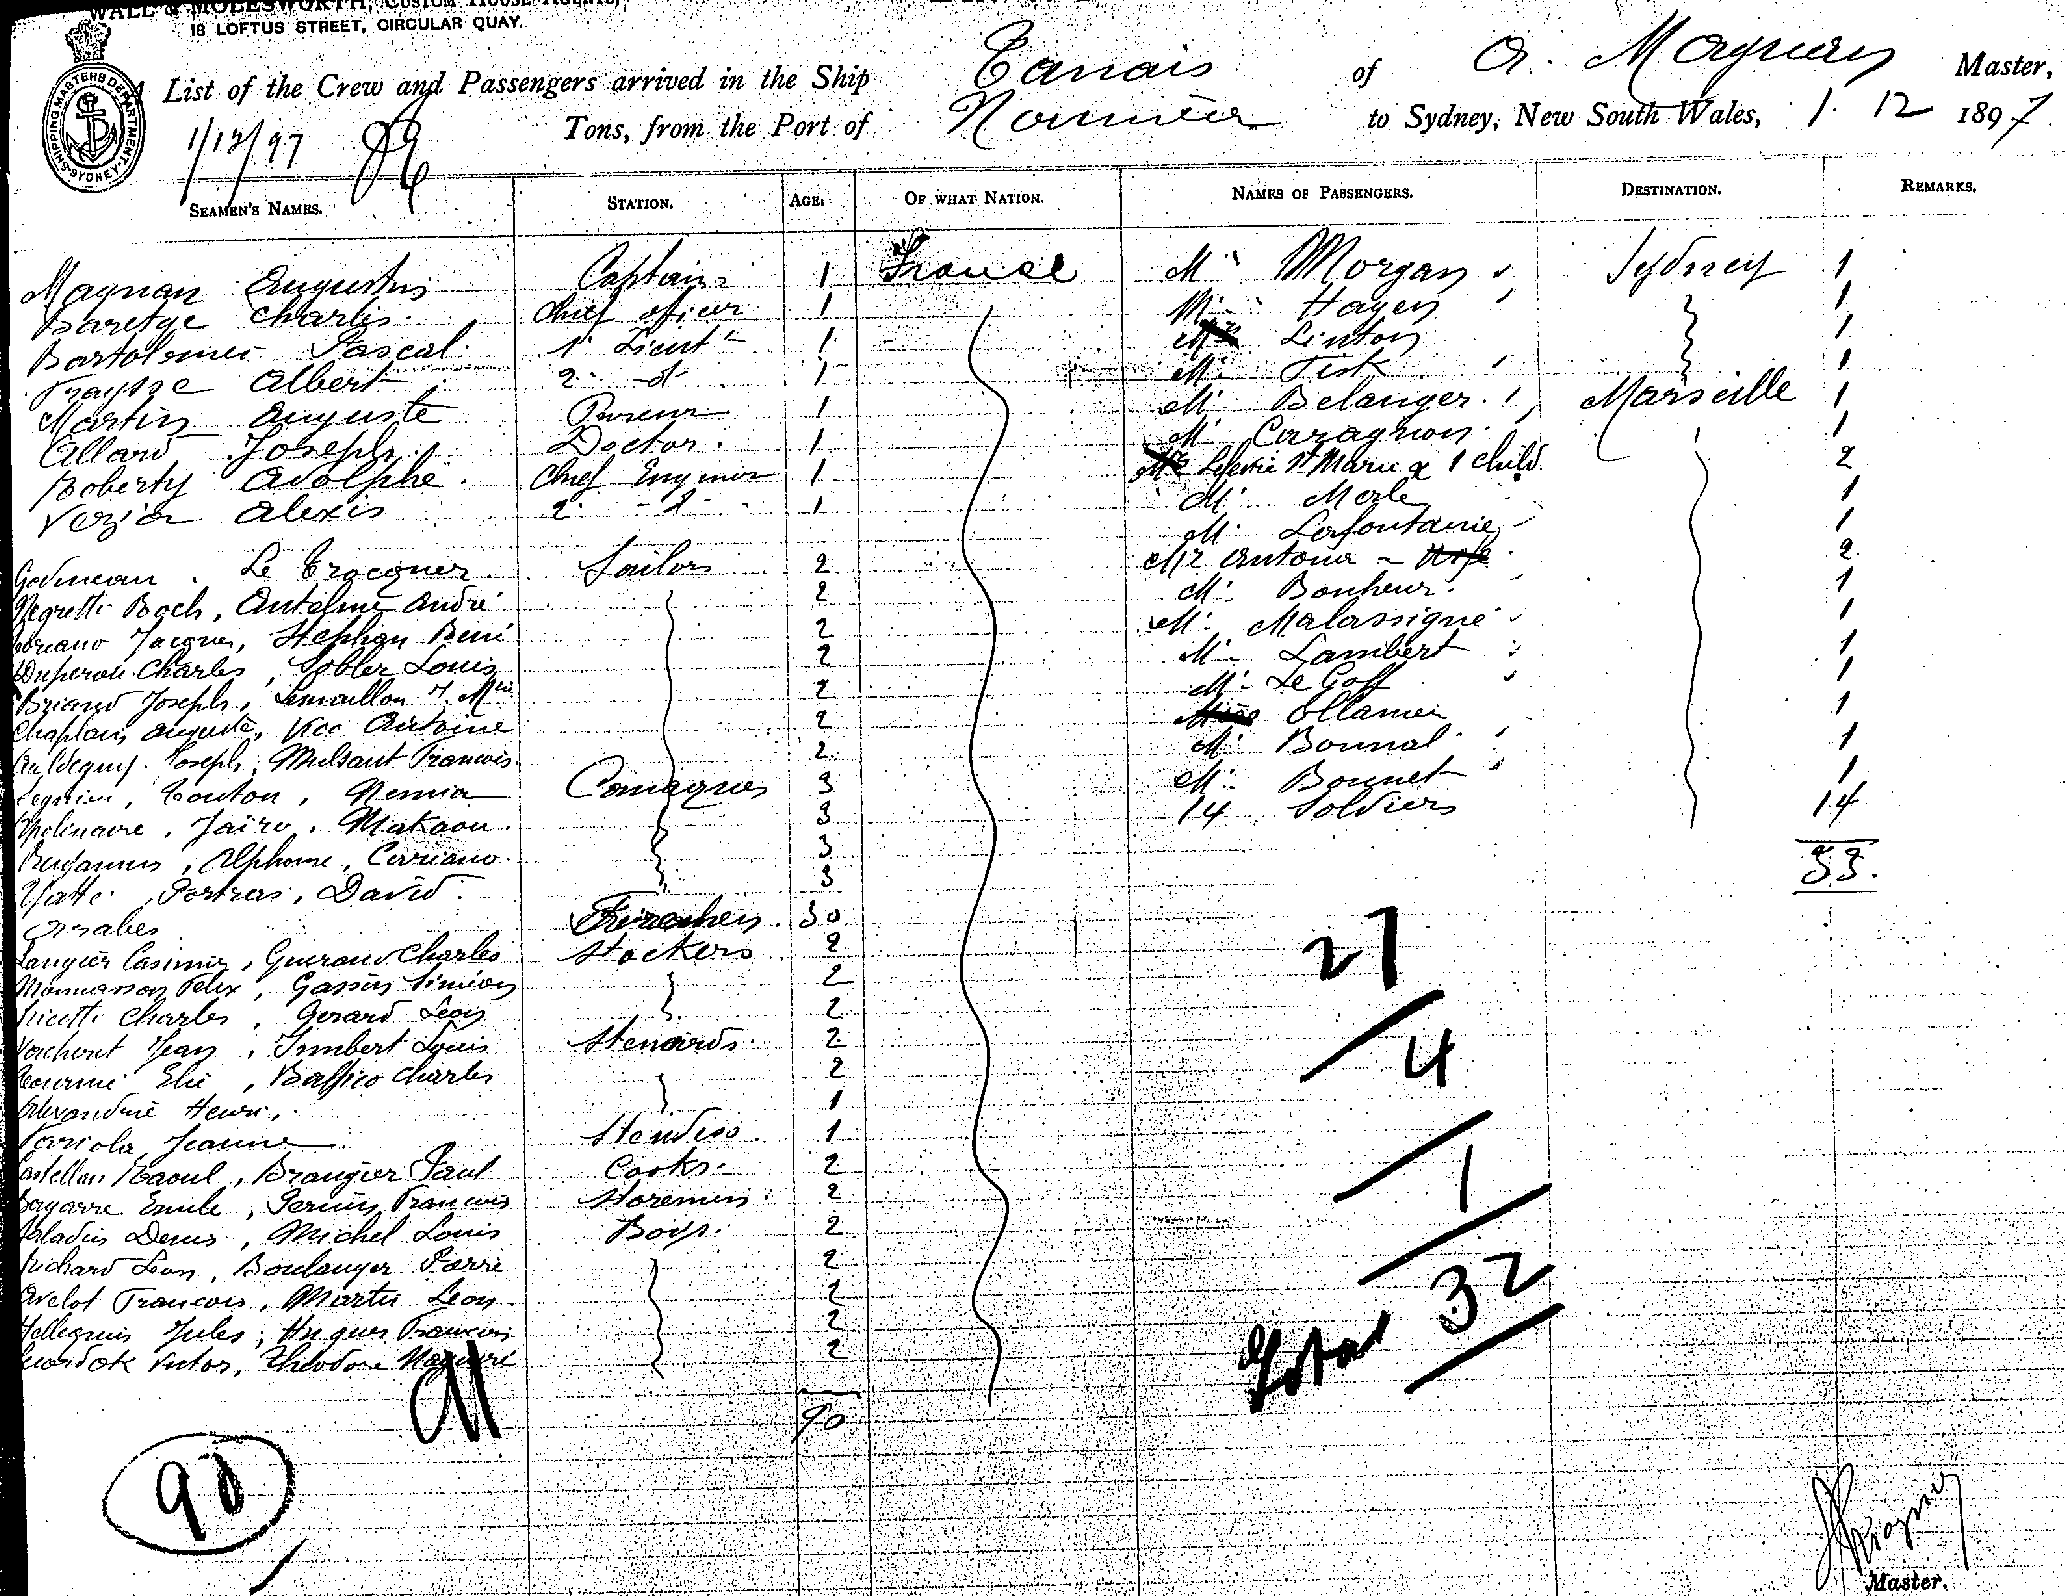 WALL & MOLESWORTH, CUSTOM HOUSE AGENTS,
18 LOFTUS STREET, CIRCULAR QUAY.
SHIPPING MASTERS DEPARTMENT SYDNEY
A List of the Crew and Passengers arrived in the Ship Tanais of A. Magnan Master,
1/12/97 Tons, from the Port of Noumea to Sydney, New South Wales, 1. 12 1897
SEAMEN'S NAMES. STATION. AGE. OF WHAT NATION. NAMES OF PASSENGERS. DESTINATION. REMARKS.
Magnan Augustin Captain 1 France Mr Morgan Sydney 1
Baretge Charles Chief officer 1 Mr Hayes 1
Bartolomei Pascal 1r Lieutt 1 Linton 1
Traysse Albert 2 d 1 Mr Fisk 1
Martin Auguste Purseur 1 Mr Belanger Marseille 1
Allard Joseph Doctor 1 Mr Caragnon 1
Roberty Adolphe Chief Engineer 1 St Marie & 1 Child 2
Vezian Alexis 2 d 1 Mr Merle 1
Mr Lafontaine 1
Godineau, Le Crocquer Sailors 2 Mr Antoua - Wife 2
Negretti Roch, Antelme André 2 Mr Bonheur 1
Soriano Jacques, Stephan René 2 Mr Malassigne 1
Duperon Charles, Sobler Louis 2 Mr Lambert 1
Briand Joseph, Lemaillon J. Mie 2 Mr Le Goff 1
Chaplain Auguste, Vica Antoine 2 Ollamier 1
Joseph, Mulsant Francois 2 Mr Bonnal 1
Couton, Nemia 3 Mr Bonnet 1
Apolinaire, Jaïro, Makaou 3 14 Soldiers 14
Alphonse, Cerriano 3 33.
Yatte, Portras, David 3
Arabes Firemen 30
Laugier Casimir, Gueraud Charles Stockers 2 27
Monnasson Felix, Gassin Simeon 2
Charles, Gerard Leon 2 4
Vachent Jean, Imbert Louis Stewards 2
Elie, Bassico Charles 2
Alexandrine Henri, 1
Parriola Jeanne 1
Castellan Raoul, Brangier Paul Cooks 2 1
Bagarre Emile, Perrin Francois Storemen 2
Denis, Michel Louis Boys. 2
Richard Leon, Boulanger Pierre 2 32
Avelot Francois, Martin Leon 2 Total
Pellegrin Jules, Hugues Francois 2
Victor, Theodore 2
91
90
90
Master.